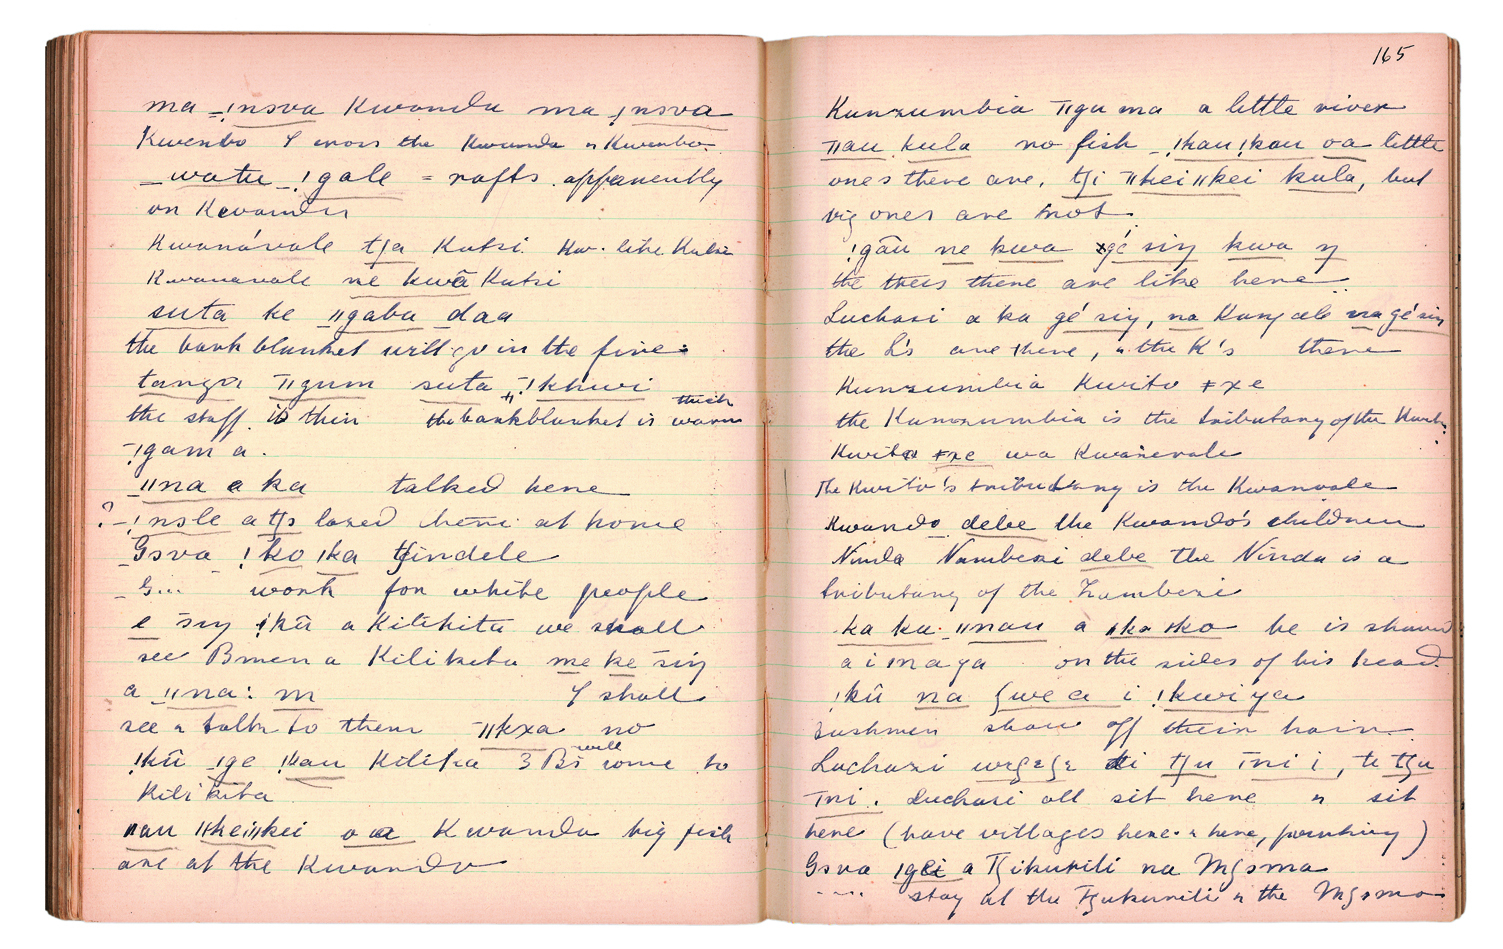 ma _ǃnɔva Kwandu ma ǃnɔva
Kwenbo I cross the Kwando & Kwenbo.
_watu _ǃgale = rafts. apparently
on Kwandu
Kwanávale tʃa Kutsi. Kw. like Kutsi
Kwanavale ne kwā Kutsi
suta ke ǁgaba daa
the bark blanket will go in the fire.
tanga ˉǁgum suta ˉǃkhwi
the staff is thin the bark blanket is warm
thick
ˉǃgam a.
_ǁna a ka talked here
? _ǃnɔle a tʃɔ lazed here at home
Gɔva ǃko ǀka tʃindele
G... work for white people
e siŋ ǃkū a Kilikitu we shall
see Bmen a Kilikitu me ke siŋ
a ǁna: m I shall
see & talk to them ˉǁkxa no
ǃkū ǀge Kilipa 3 B's will come to
Kilikita
ǁkeiǁkei oa a Kwando big fish
are at the Kwando
165
Kunzumbia ˉǁgu ma a little river
ˉǁau kula no fish _ǃkauǃkau oa little
ones there are, tʃi ˉǁkeiǁkei kula, but
big ones are not.
ǃgāu ne kwa gé siŋ kwa ŋ
the trees there are like here.
Luchazi a ka gé siŋ, na Kangale na gé siŋ
the L's are there, & the K's there
Kunzumbia Kwito ǂxe
the Kunzumbia is the tributary of the Kwito.
Kwito ǂxe wa Kwanevale
The Kwito's tributary is the Kwanvale
Kwando debe the Kwando's children
Ninda Nambezi debe the Ninda is a
tributary of the Zambezi
ka ka ǁnau a ǀko ǀko he is shaved
a i naga on the sides of his head.
ǃkū na ʃwe a i ǃkwiya
Bushmen shave off their hair.
Luchazi tʃu ˉni i, te tʃu
ˉni. Luchazi all sit here & sit
here (have villages here & here, )
Gɔva ǀgei a Tʃikuriti na Mʃɔma
.... stay at the Tʃukuriti & the Mʃɔmo